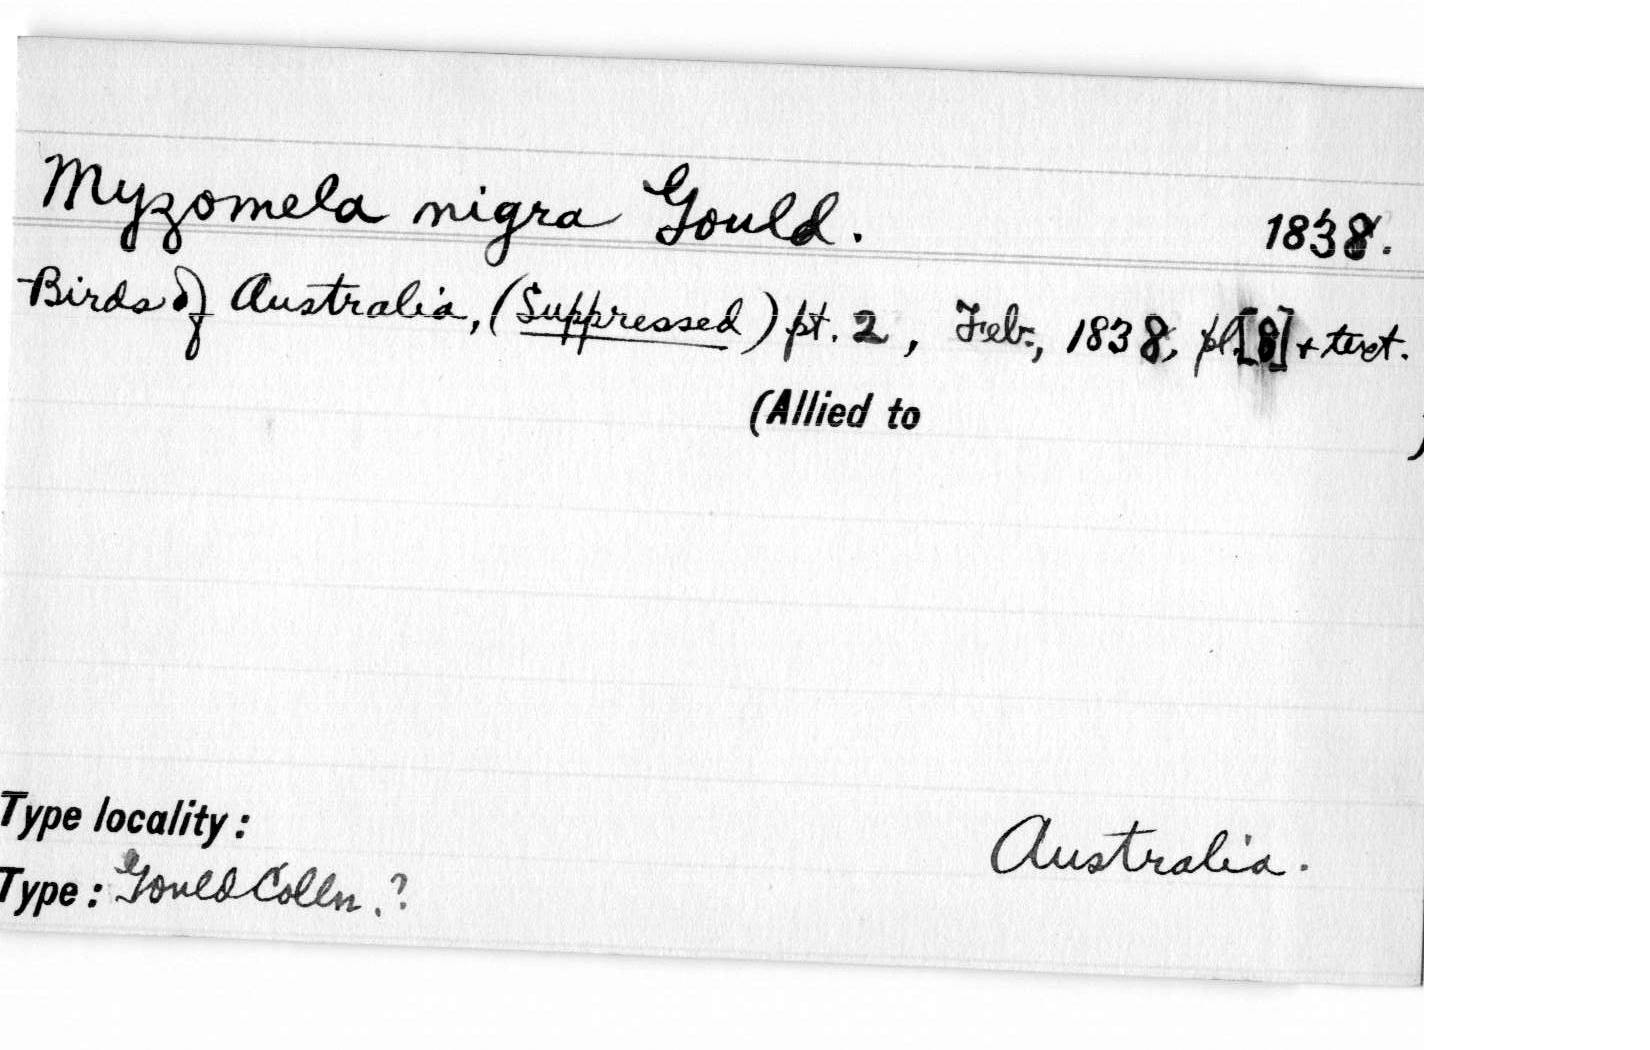 Myzomela nigra Gould. 1838.
Birds of Australia, (Suppressed) pt. 2, Feb., 1838, pl.[8] + text.
(Allied to )
Type locality: Australia.
Type: Gould Colln.?